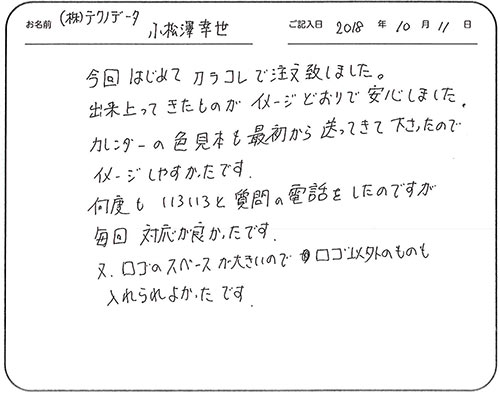 お名前 (株)テクノデータ 小松澤幸世 ご記入日 2018 年 10 月 11 日
今回 はじめて カラコレで注文致しました。
出来上ってきたものが イメージどおりで 安心しました。
カレンダーの色見本も最初から送ってきて下さったので
イメージしやすかったです.
何度も いろいろと質問の電話をしたのですが
毎回 対応が良かったです.
又、ロゴのスペースが大きいので ロゴ以外のものも
入れられよかったです.